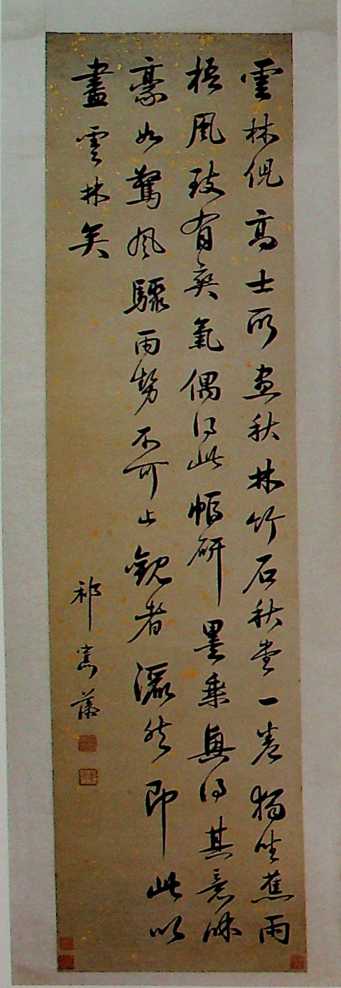 雲林倪高士所畫秋林竹石秋堂一卷獨坐蕉雨
梧風致有爽氣偶得此帋研墨乘興得其意味
豪如驚風驟雨勢不可止觀者灑然即此以
盡雲林矣
祁寯藻